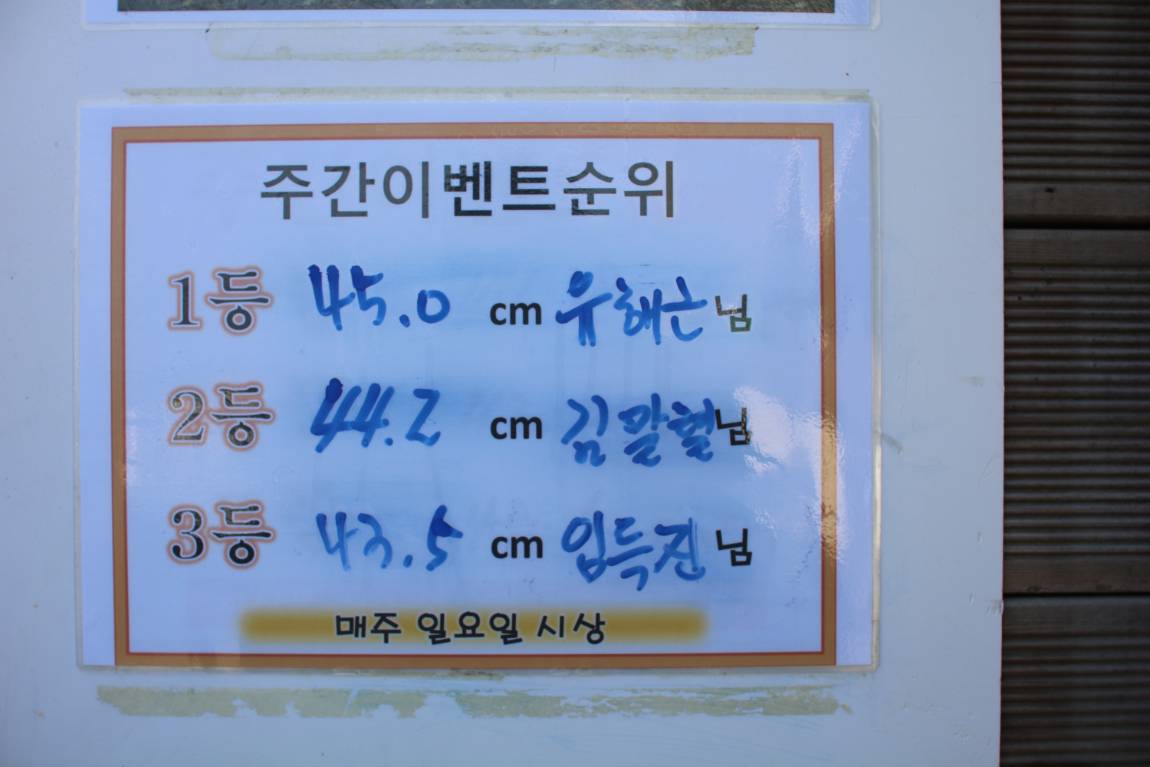 주간이벤트순위
1등 45.0 cm 유해근님
2등 44.2 cm 김말혈님
3등 43.5 cm 임득진님
매주 일요일 시상